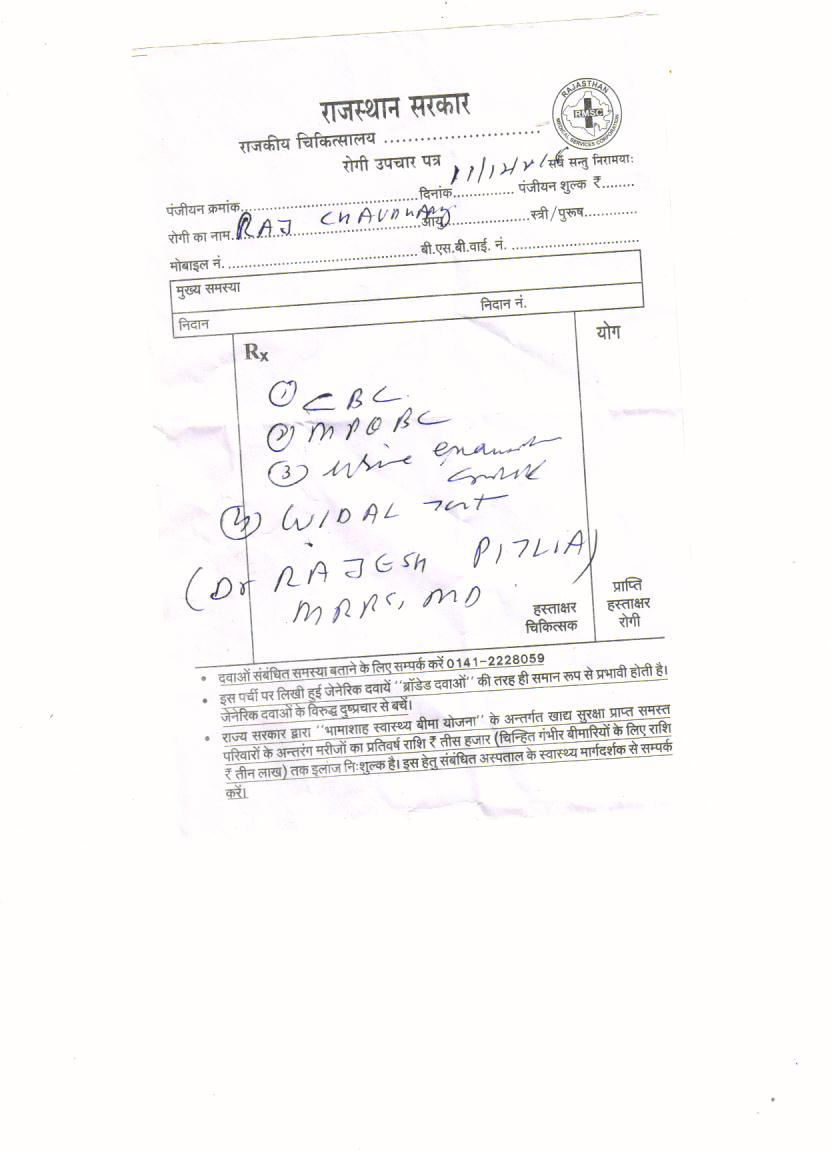 राजस्थान सरकार
RAJASTHAN
RMSC
MEDICAL SERVICES CORPORATION
राजकीय चिकित्सालय ..........................
रोगी उपचार पत्र
सर्वे सन्तु निरामयाः
पंजीयन क्रमांक.................................दिनांक.............. पंजीयन शुल्क ₹........
रोगी का नाम RAJ CHAUDHARY आयु...................स्त्री/पुरूष.............
मोबाइल नं. .................................... बी.एस.बी.वाई. नं. ............................
मुख्य समस्या
निदान निदान नं.
Rx योग
① CBC
② MPQBC
③ urine
④ WIDAL test
(Dr RAJESH
MD
हस्ताक्षर चिकित्सक
प्राप्ति हस्ताक्षर रोगी
• दवाओं संबंधित समस्या बताने के लिए सम्पर्क करें 0141-2228059
• इस पर्ची पर लिखी हुई जेनेरिक दवायें ''ब्रॉडेड दवाओं'' की तरह ही समान रूप से प्रभावी होती है।
जेनेरिक दवाओं के विरुद्ध दुष्प्रचार से बचें।
• राज्य सरकार द्वारा ''भामाशाह स्वास्थ्य बीमा योजना'' के अन्तर्गत खाद्य सुरक्षा प्राप्त समस्त
परिवारों के अन्तरंग मरीजों का प्रतिवर्ष राशि ₹ तीस हजार (चिन्हित गंभीर बीमारियों के लिए राशि
₹ तीन लाख) तक इलाज निःशुल्क है। इस हेतु संबंधित अस्पताल के स्वास्थ्य मार्गदर्शक से सम्पर्क
करें।